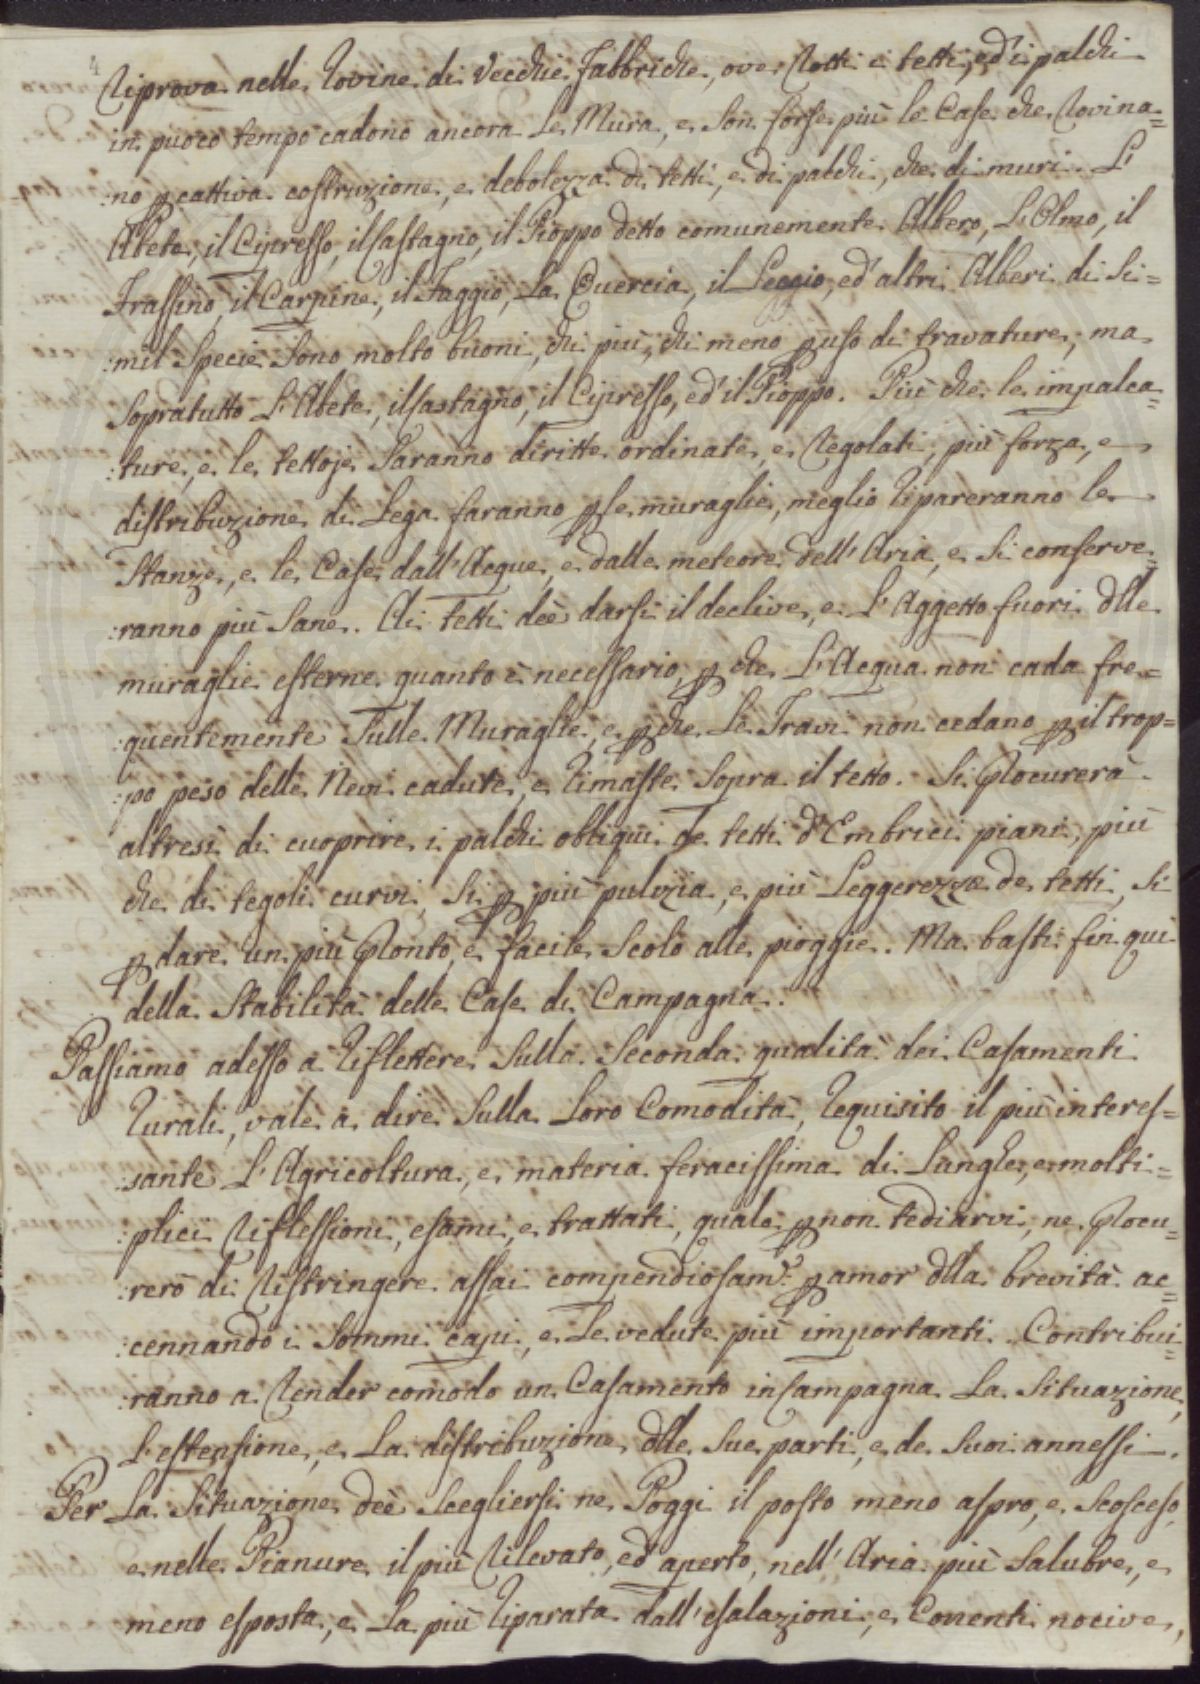 riprova nelle rovine di Vecchie Fabbriche, ove rotti i tetti, ed' i palchi
in puoco tempo cadono ancora Le Mura, e Son forse più le Case che rovina=
:no ꝑ cattiva costruzione, e debolezza di tetti, e di palchi, che di muri. L'
Abete, il Cipresso, il Castagno, il Pioppo detto comunemente Albero, L'Olmo, il
Frassino, il Carpine, il Faggio, La Quercia, il Leccio, ed' altri Alberi di Si=
:mil Specie Sono molto buoni, chi più, chi meno ꝑ uso di travature, ma
Sopratutto L'Abete, il Castagno, il Cipresso, ed' il Pioppo. Più che le impalca=
:ture, e le tettoje Saranno diritte ordinate, e regolati, più forza, e
distribuzione di Lega faranno ꝑ le muraglie, meglio ripareranno le
Stanze, e le Case dall' Acque, e dalle meteore dell' Aria, e Si conserve=
:ranno più Sane. Ai tetti deè darsi il declive, e L'Aggetto fuori dlle
muraglie esterne quanto è necessario, ꝑ che L'Acqua non cada fre=
:quentemente Sulle Muraglie, e ꝑche Le Travi non cedano ꝑ il trop=
:po peso delle Nevi cadute, e rimaste Sopra il tetto. Si Procurerà
altresì di cuoprire i palchi obliqui de tetti d'Embrici piani, più
che di tegoli curvi, Si ꝑ più pulizia, e più Leggerezza de tetti, Si
ꝑ dare un più Pronto, e facile Scolo alle pioggie. Ma basti fin qui
della Stabilità delle Case di Campagna.
Passiamo adesso a riflettere Sulla Seconda qualità dei Casamenti
rurali, vale à dire Sulla Loro Comodità, requisito il più interes=
:sante L'Agricoltura, e materia feracissima di Lunghe, e molti=
:plici riflessioni, esami, e trattati, quale ꝑ non tediarvi, ne Procu=
:rerò di ristringere assai compendiosam.e ꝑ amor dlla brevità ac=
:cennando i Sommi capi, e Le vedute più importanti. Contribui=
:ranno a render comodo un Casamento in Campagna La Situazione,
L'estensione, e La distribuzione dlle Sue parti, e de Suoi annessi.
Per La Situazione deè Scegliersi ne Poggi il posto meno aspro, e Scosceso,
e nelle Pianure il più rilevato, ed' aperto, nell' Aria più Salubre, e
meno esposta, e La più riparata dall' esalazioni, e Conenti nocive,